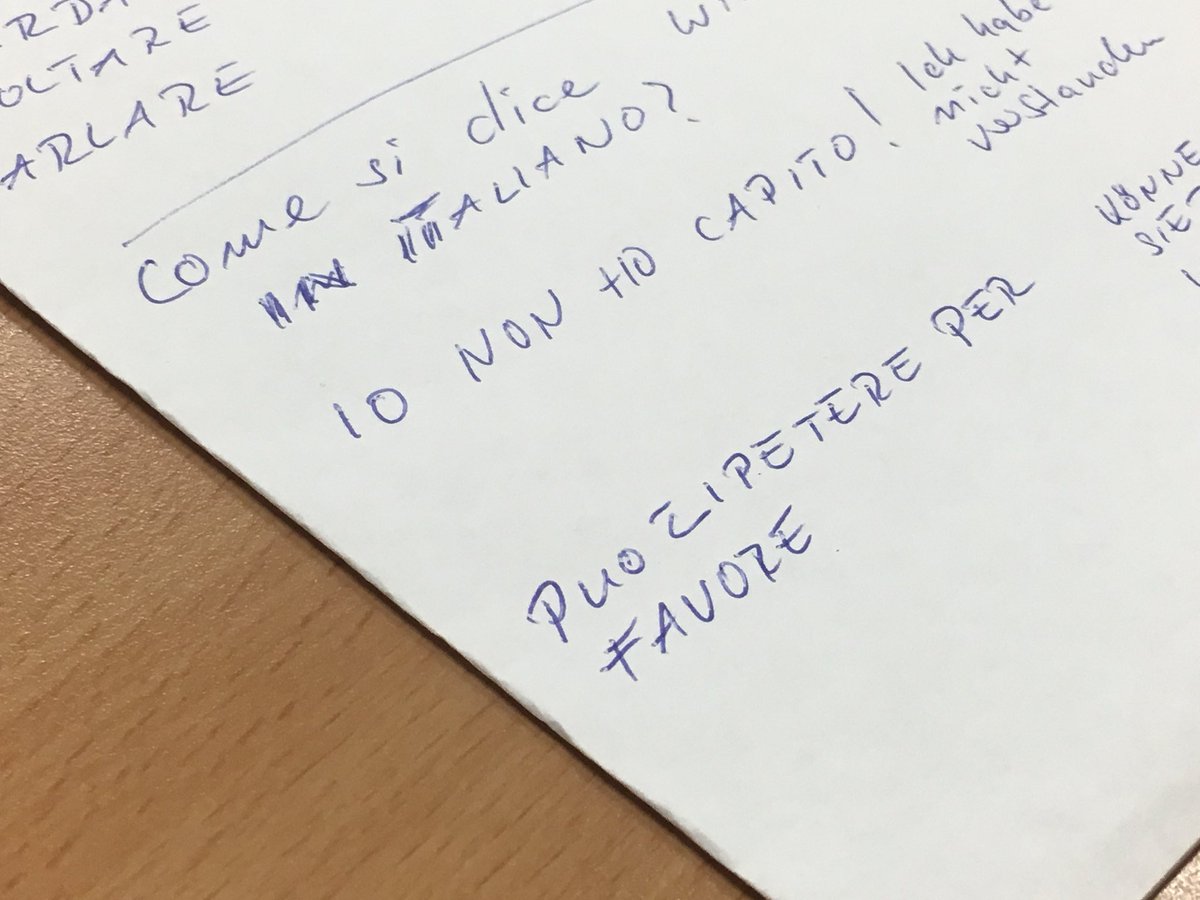 OLTARE
ARLARE
Come si dice
ITALIANO?
IO NON HO CAPITO!
Ich habe
nicht
verstanden
PUO RIPETERE PER
FAVORE
KÖNNE
SIE